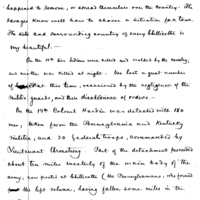 happened to remove, or spread themselves over the country. The
savages know well how to choose a situation for a town.
The site and surrounding country of every Chillicothe is
very beautiful. —
On the 18th two Indians were killed and scalped by the cavalry;
and another was killed at night. We lost a great number
of horses at this time, occasioned by the negligence of the
guards, and their disobedience of orders. —
On the 19th Colonel Hardin was detached with 180
men, taken from the Pennsylvania and Kentucky
Militia, and 30 Federal troops, commanded by
Lieutenant Armstrong. Part of the detachment proceeded
about ten miles westerly of the main body of the
army, now posted at Chillicothe (the Pennsylvanians, who formed
the left column, having fallen some miles in the